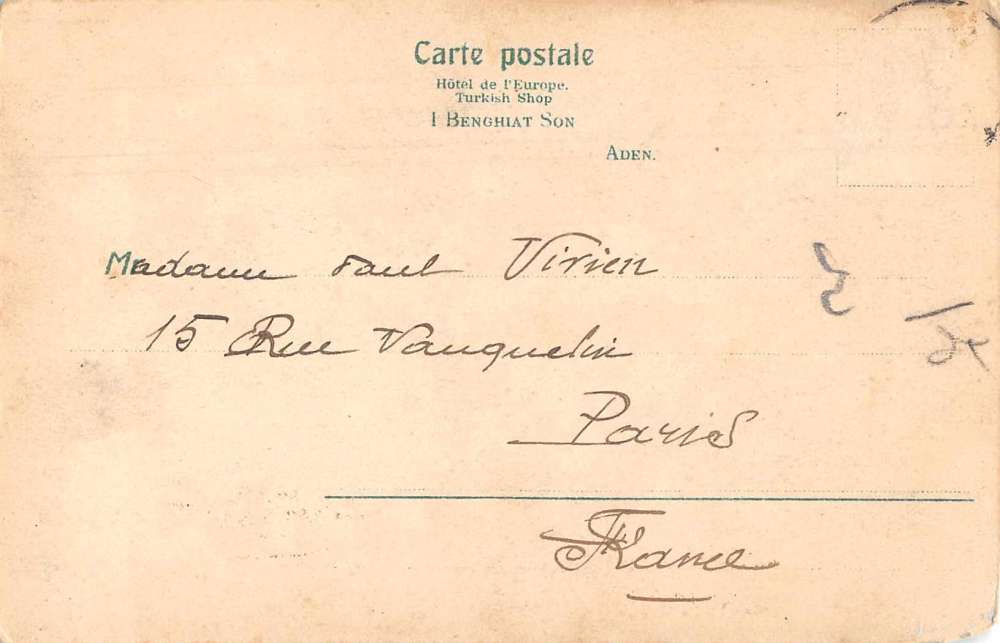 Carte postale
Hôtel de l'Europe.
Turkish Shop
I BENGHIAT SON
ADEN.
Madame Paul Virien
15 Rue Vauquelin
Paris
France